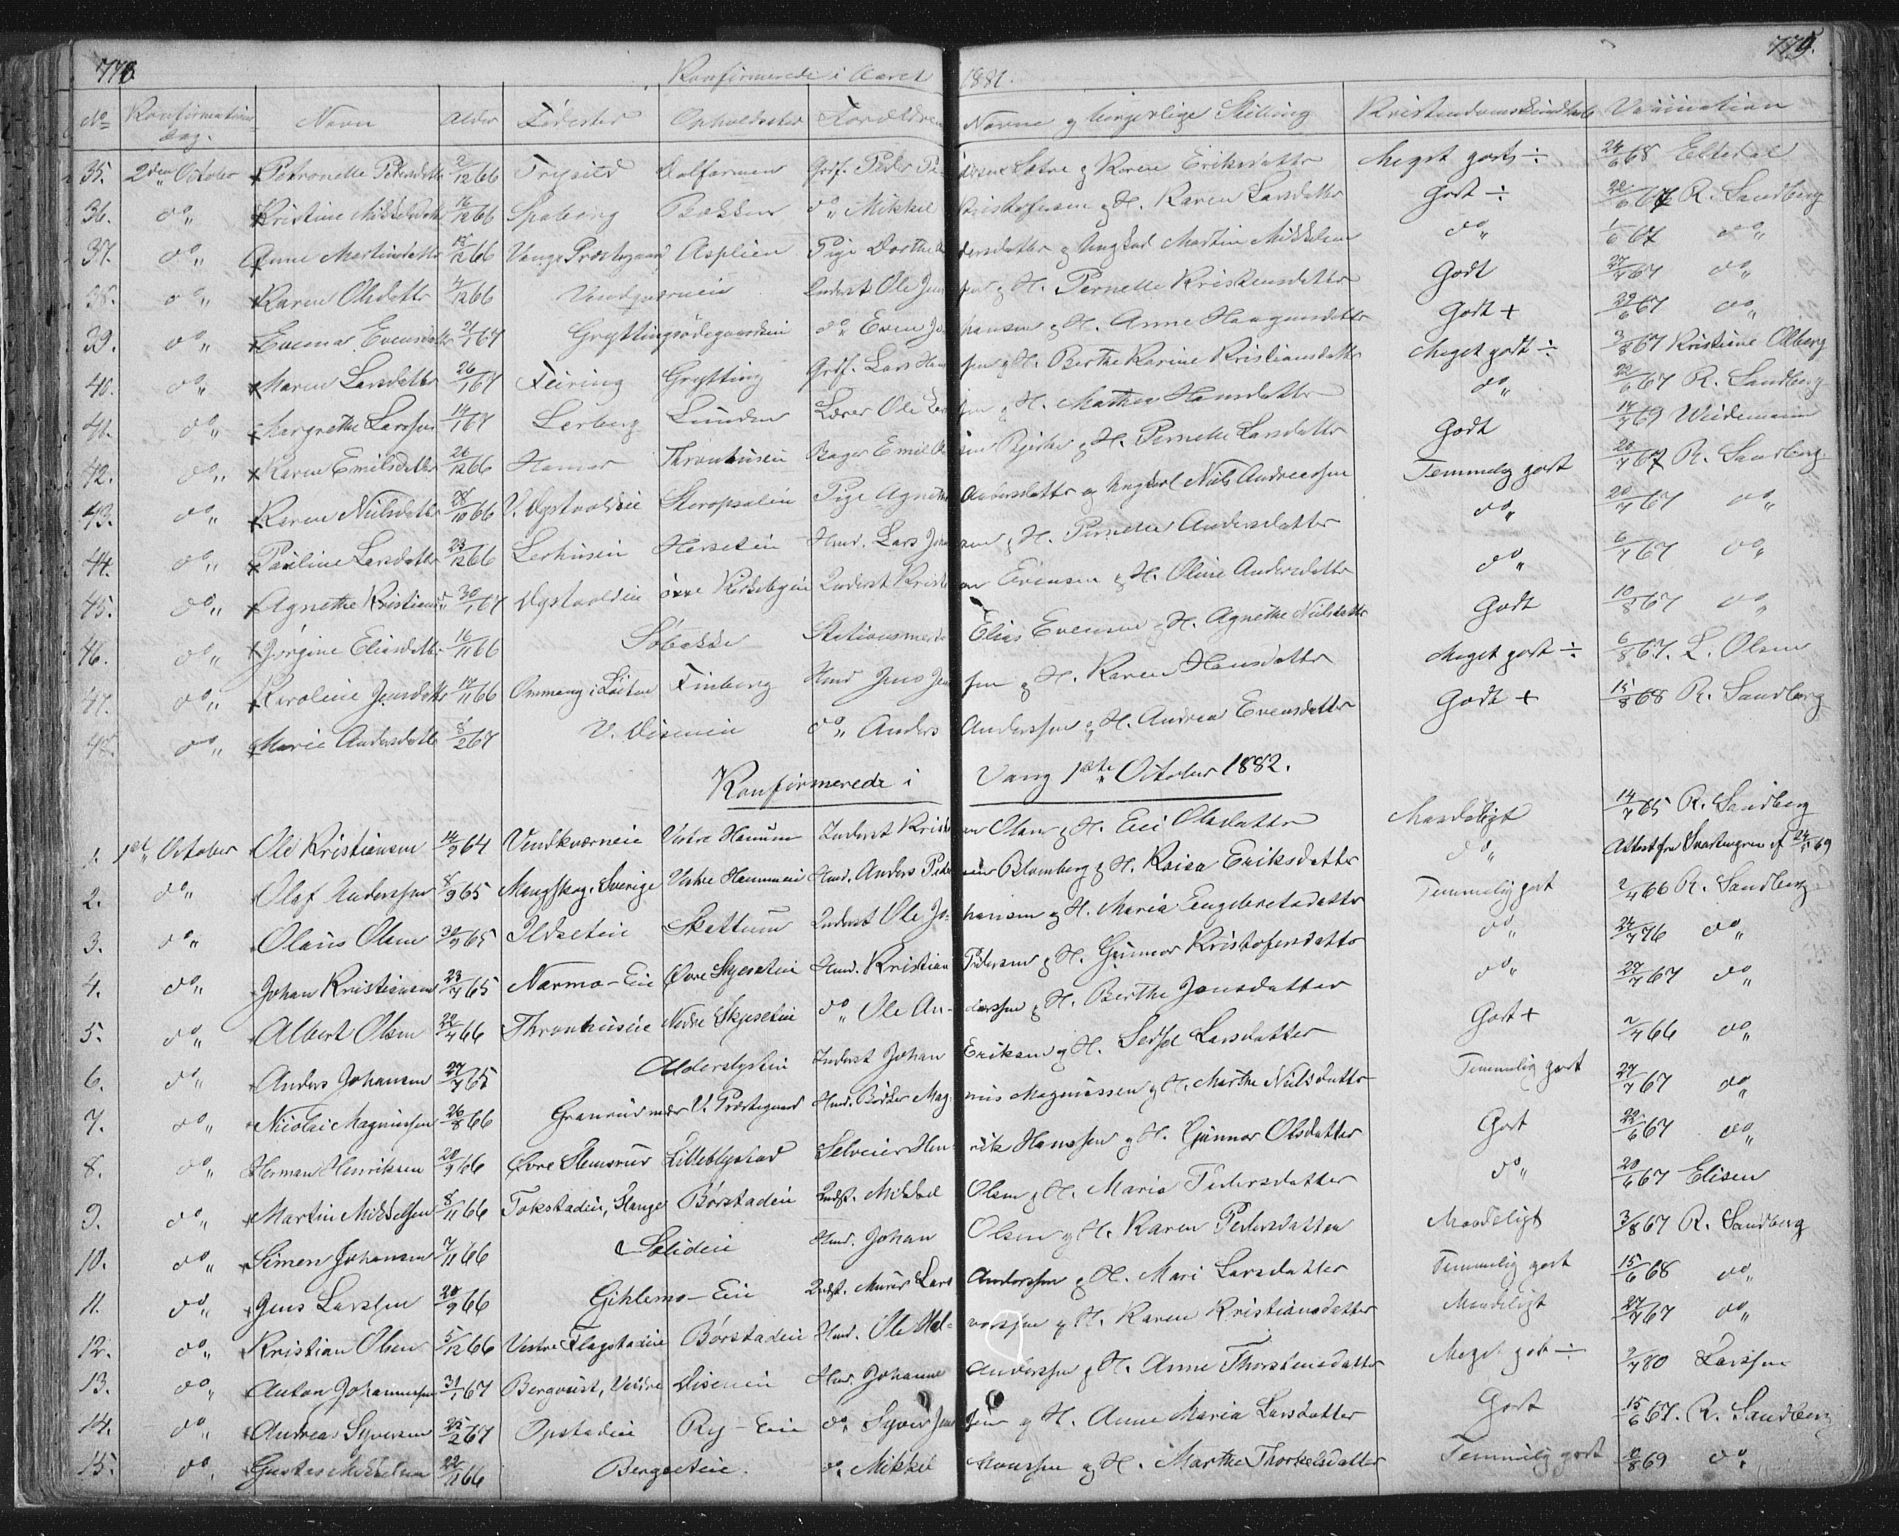 778. 779.
Konfirmerede i Aaret 1881.
No Konfirmations Dag. Navn Alder Fødested Opholdssted Forældrenes Navne og borgerlige Stilling Kristendomskundskab Vaccination
35. 2den October Petronelle Pedersdatter 2/12 66 Trysild Dalfarmen Grdf. Peder Pedersen Sætre og Karen Eriksdatter Meget godt ÷ 24/6 68 Eltedal
36. do " Kristine Mikkelsdatter 16/12 66 Spaberg Bækken do " Mikkel Kristofersen og H. Karen Larsdatter Godt ÷ 22/6 67 R. Sandberg
37. do " Anne Martinsdatter 15/12 66 Vangs Præstegaard Asplien Pige Dorthe Andersdatter og Ungkarl Martin Mikkelsen do " 1/6 67 do "
38. do " Karen Olsdatter 4/12 66 Vendkværneie Inderst Ole Jensen og H. Pernelle Kristensdatter Godt 27/7 67 do "
39. do " Evensdatter 21/1 67 Gryttingsødegaardseie do " Even Johansen og H. Anne Haagensdatter Godt + 22/6 67 do "
40. do " Maren Larsdatter 26/1 67 Feiring Grytting Grdf. Lars Hansen og H. Berthe Karine Kristiansdatter Meget godt ÷ 3/8 67 Kristine Olberg
41. do " Margrethe Larssen 14/1 67 Lerberg Lunden Lærer Ole Larssen og H. Mathea Hansdatter do " 22/6 67 R. Sandberg
42. do " Karen Emilsdatter 26/12 66 Hamar Thronhuseie Bager Emil Bjerke og H. Pernelle Larsdatter Godt 17/7 69 Wiedemann
43. do " Karen Nielsdatter 28/10 66 V. Dystvoldeie Skaropsaleie Pige Agnethe Andersdatter og Ungkarl Niels Andreassen Temmelig godt 20/7 67 R. Sandberg
44. do " Pauline Larsdatter 23/12 66 Lerhuseie Herseteie Hmd. Lars Jensen og H. Pernelle Andersdatter do " 20/7 67 do "
45. do " Agnethe Kristians 30/1 67 Dystvoldeie øvre Kirkebyeie Inderst Kristian Evensen og H. Oline Andersdatter do " 6/7 67 do "
46. do " Jørgine Eliasdatter 16/11 66 Søbakke Stationsmester Elias Evensen og H. Agnethe Nielsdatter Godt 10/8 67 do "
47. do " Karoline Jensdatter 17/11 66 Ommang i Løiten Finberg Hmd Jens Jensen og H. Karen Hansdatter Meget godt ÷ 6/8 67. L. Olsen
48. do " Marie Andersdatter 8/2 67 V. Diseneie do " Anders Anderssen og H. Andrea Evensdatter Godt + 15/8 68 R. Sandberg
Konfirmerede i Vang 1ste October 1882.
1. 1st October Ole Kristiansen 14/9 64 Vendkværneie Vestre Hamum Inderst Kristian Olsen og H. Eli Olsdatter Maadeligt 14/7 65 R. Sandberg
2. do " Olaf Anderssen 8/9 65 Mangskog, Sverige Vestre Hammeie Hmd. Anders Peter Blomberg og H. Kaisa Eriksdatter do " Attest fra Svartengren af 24/5 69
3. do " Olaus Olsen 30/9 65 Ildseteie Skattum Inderst Ole Johansen og H. Maria Engebretsdatter Temmelig godt 2/7 66 R. Sandberg
4. do " Johan Kristiansen 23/7 65 Narmo-Eie Øvre Skjeseteie Hmd. Kristian Pedersen og H. Gunnor Kristofersdatter do " 24/7 76 do "
5. do " Albert Olsen 22/4 66 Thronhuseie Nedre Skjeseteie do " Ole Anderssen og H. Berthe Jensdatter do " 27/7 67 do "
6. do " Anders Johansen 27/7 65 Alderslysteie Inderst Johan Eriksen og H. Sedsel Larsdatter Godt + 2/7 66 do "
7. do " Nicolai Magnussen 26/8 66 Granrud nær V. Præstegaard Hmd. Bødker Magnus Magnussen og H. Marthe Nielsdatter Temmelig godt 27/7 67 do "
8. do " Herman Henriksen 20/9 66 Øvre Stensrud Lilleblystad Selveier Henrik Hanssen og H. Gunnor Olsdatter Godt 22/6 67 do "
9. do " Martin Mikkelsen 8/11 66 Tokstadeie, Stange Børstadeie Indst. Mikkel Olsen og H. Maria Pedersdatter do " 20/6 67 Elisen
10. do " Simen Johansen 7/11 66 Solideie Hmd. Johan Olsen og H. Karen Pedersdatter Maadeligt 3/8 67 R. Sandberg
11. do " Jens Larssen 20/9 66 Gihlemo-Eie Indst. Murer Lars Anderssen og H. Mari Larsdatter Temmelig godt 15/6 68 do "
12. do " Kristian Olsen 5/12 66 Vestre Flagstadeie Børstadeie Hmd. Ole Halvorssen og H. Karen Kristiansdatter Maadeligt 27/7 67 do "
13. do " Anton Johannessen 31/1 67 Bergqvist, Vestre Diseneie Hmd. Johannes Anderssen og H. Anne Thorstensdatter Meget godt ÷ 2/7 80 Larssen
14. do " Andreas Syversen 25/2 67 Opstadeie Ry-Eie do " Syver Jenssen og H. Anne Maria Larsdatter Godt 15/6 67. R. Sandberg
15. do " Gustav Mikkelsen 22/11 66 Bergseteie. do " Mikkel Monssen og H. Marthe Thorkelsdatter Temmelig godt 10/8 69 do "